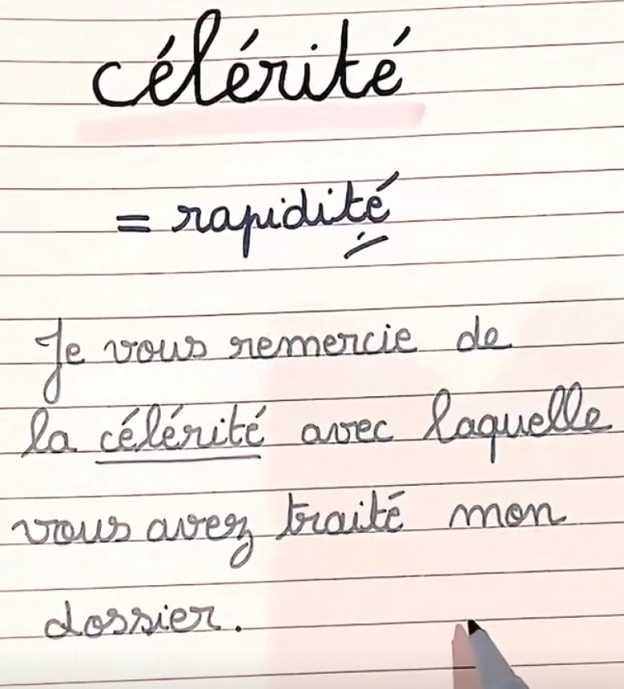 célérité
= rapidité
Je vous remercie de
la célérité avec laquelle
vous avez traité mon
dossier.